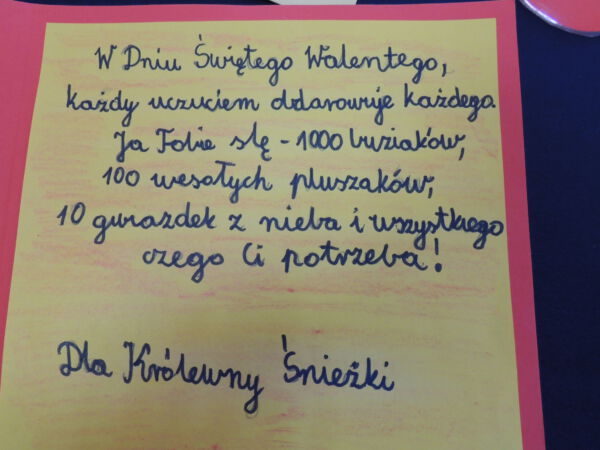 W Dniu Świętego Walentego,
każdy uczuciem obdarowuje każdego.
Ja Tobie ślę - 1000 buziaków,
100 wesołych pluszaków,
10 gwiazdek z nieba i wszystkiego
czego Ci potrzeba!
Dla Królewny Śnieżki